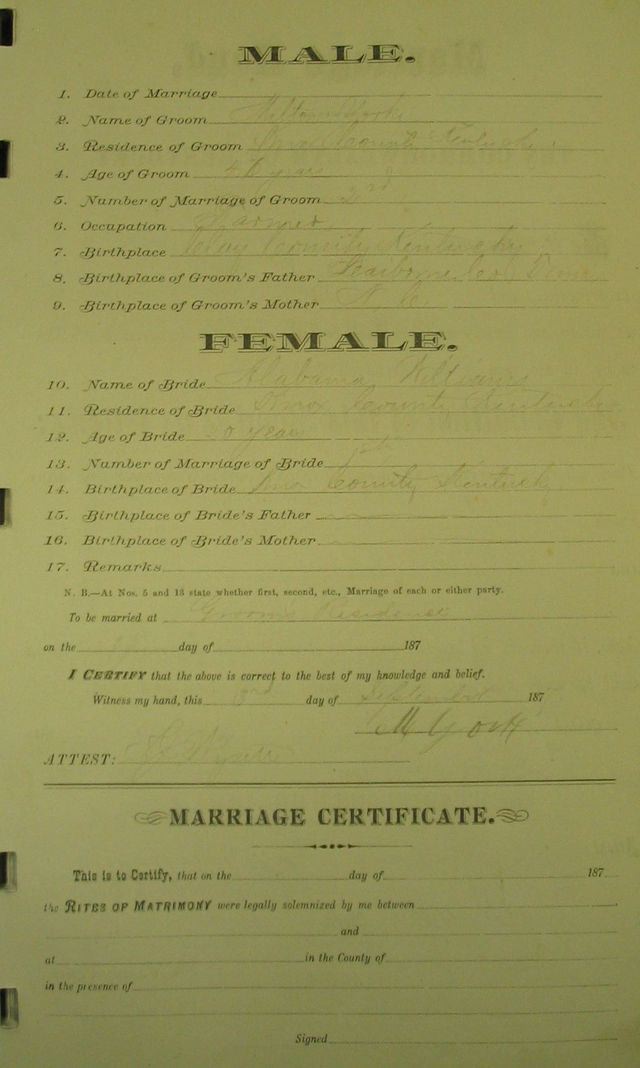 MALE.
1. Date of Marriage
2. Name of Groom Milton York
3. Residence of Groom Knox County Kentucky
4. Age of Groom 46 years
5. Number of Marriage of Groom 2nd
6. Occupation Farmer
7. Birthplace Clay County Kentucky
8. Birthplace of Groom's Father Claiborne Co Tenn
9. Birthplace of Groom's Mother N. C.
FEMALE.
10. Name of Bride Alabama Williams
11. Residence of Bride Knox County Kentucky
12. Age of Bride 20 years
13. Number of Marriage of Bride 1st
14. Birthplace of Bride Knox County Kentucky
15. Birthplace of Bride's Father
16. Birthplace of Bride's Mother
17. Remarks
N. B.—At Nos. 5 and 13 state whether first, second, etc., Marriage of each or either party.
To be married at Grooms Residence
on the day of 187
I CERTIFY that the above is correct to the best of my knowledge and belief.
Witness my hand, this 3rd day of September 187
M York
ATTEST:
MARRIAGE CERTIFICATE.
This is to Certify, that on the day of 187
the RITES OF MATRIMONY were legally solemnized by me between
and
at in the County of
in the presence of
Signed